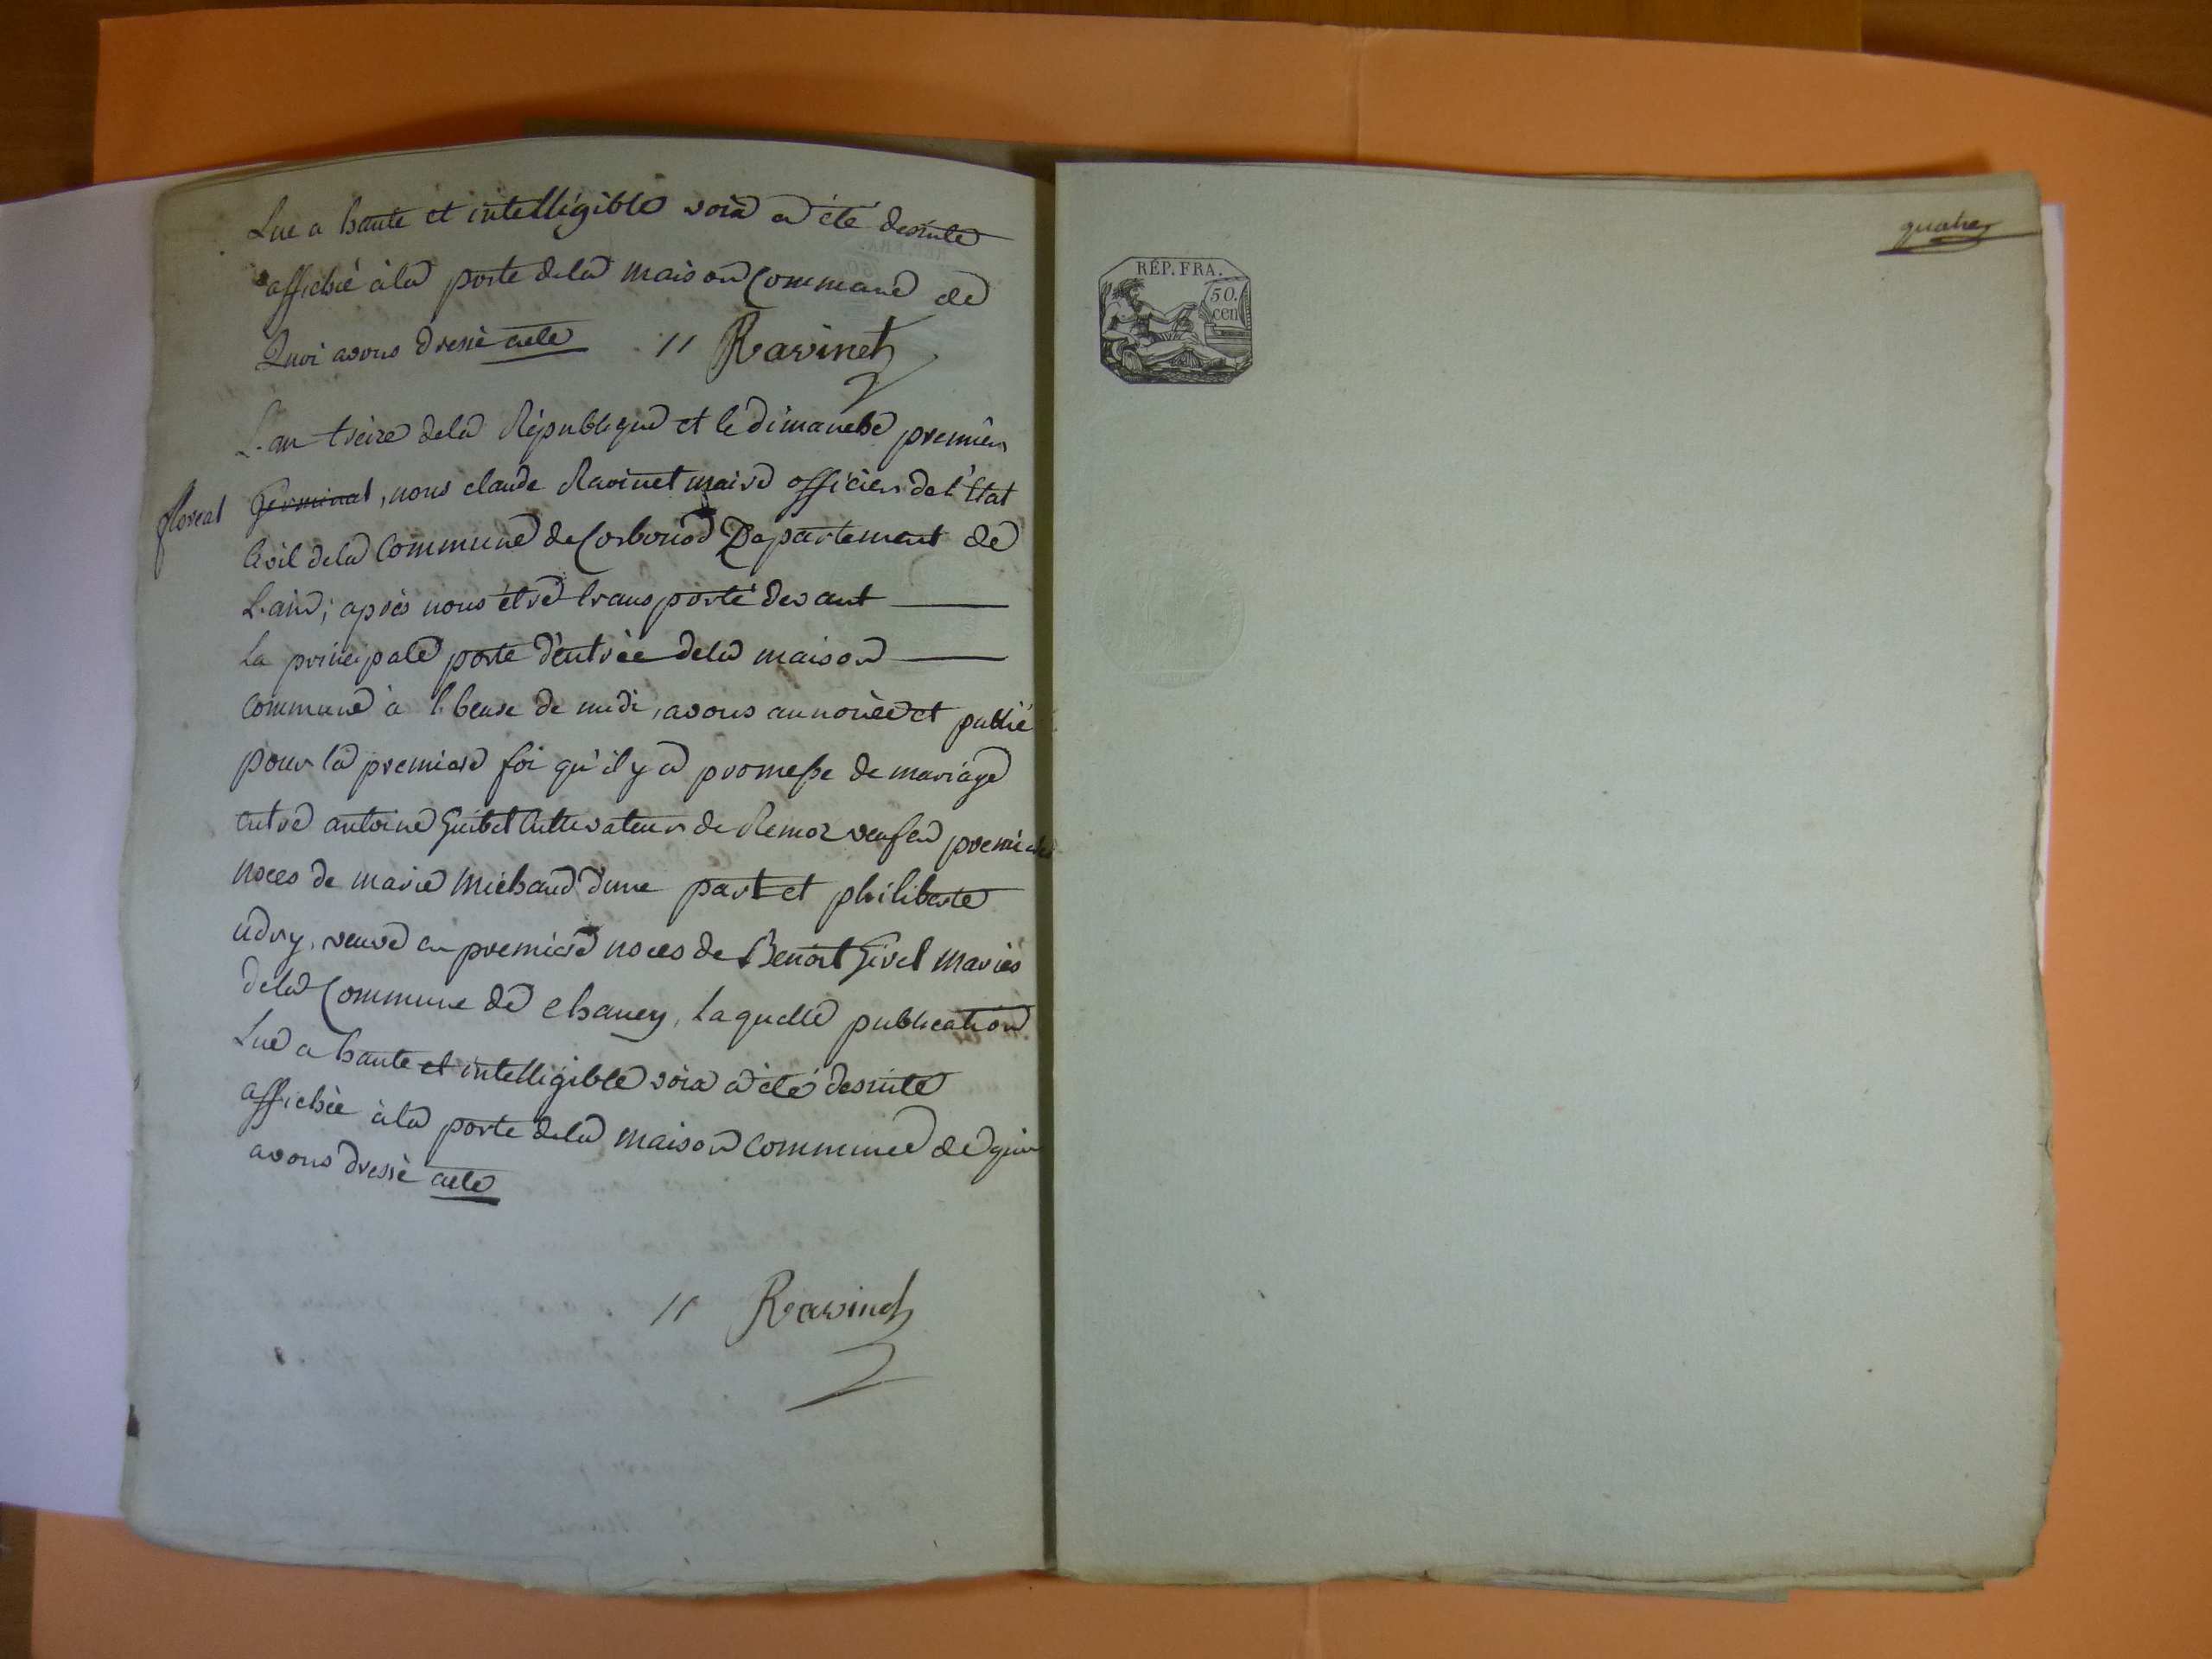 Lue a haute et intelligible voix a été desuite
affiché à la porte dela maison Commune de
Quoi avons dressé acte // Ravinet
L'an treize dela République et le dimanche premier
floreal germinal, nous claude Ravinet maire officier de l'Etat
Civil dela Commune de Corbonod Departement de
L'ain; après nous etre transporté devant
la principale porte d'entrée dela maison
Commune à l'heure de midi, avons annoncé et publié
pour la premiere foi qu'il y a promesse de mariage
entre antoine Guibet Cultivateur de Remoz veuf en premiere
noces de marie Michaud d'une part et philiberte
udry, veuve en premiere noces de Benoit Givel mariés
dela Commune de chanay, laquelle publication
Lue a haute et intelligible voix a été desuite
affichée à la porte dela maison Commune de quoi
avons dressé acte
// Ravinet
quatre
RÉP. FRA.
50.
cen